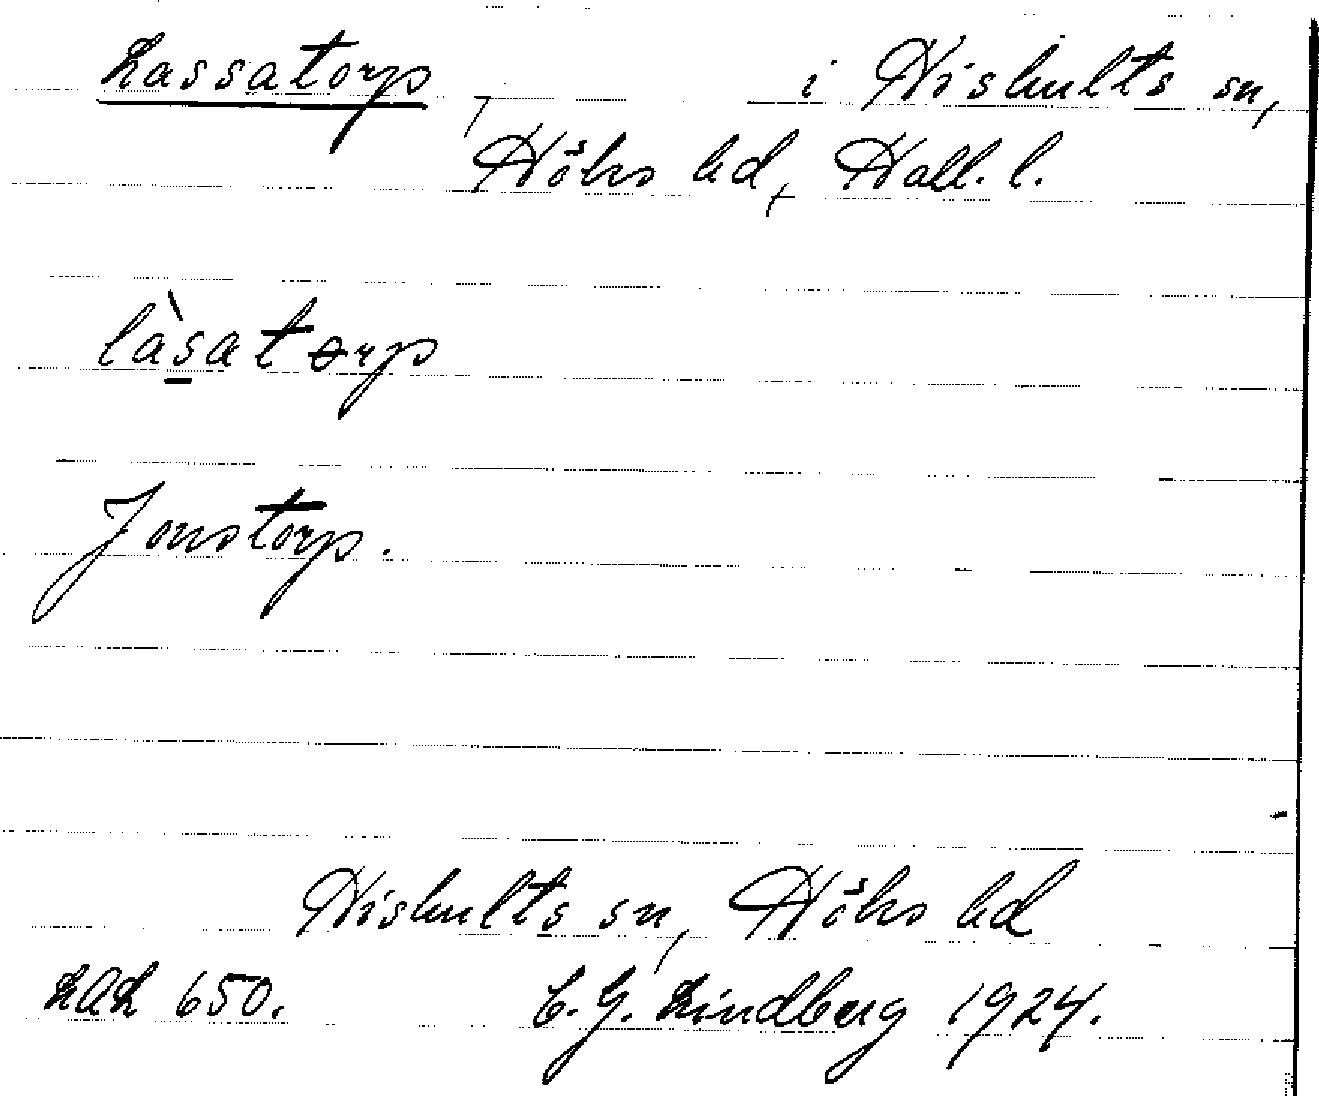 Lassatorp, i Hishults sn,
Höks hd, Hall. l.
làsatorp
Jonstorp.
Hishults sn, Höks hd
LAL 650. C. G. Lindberg 1924.